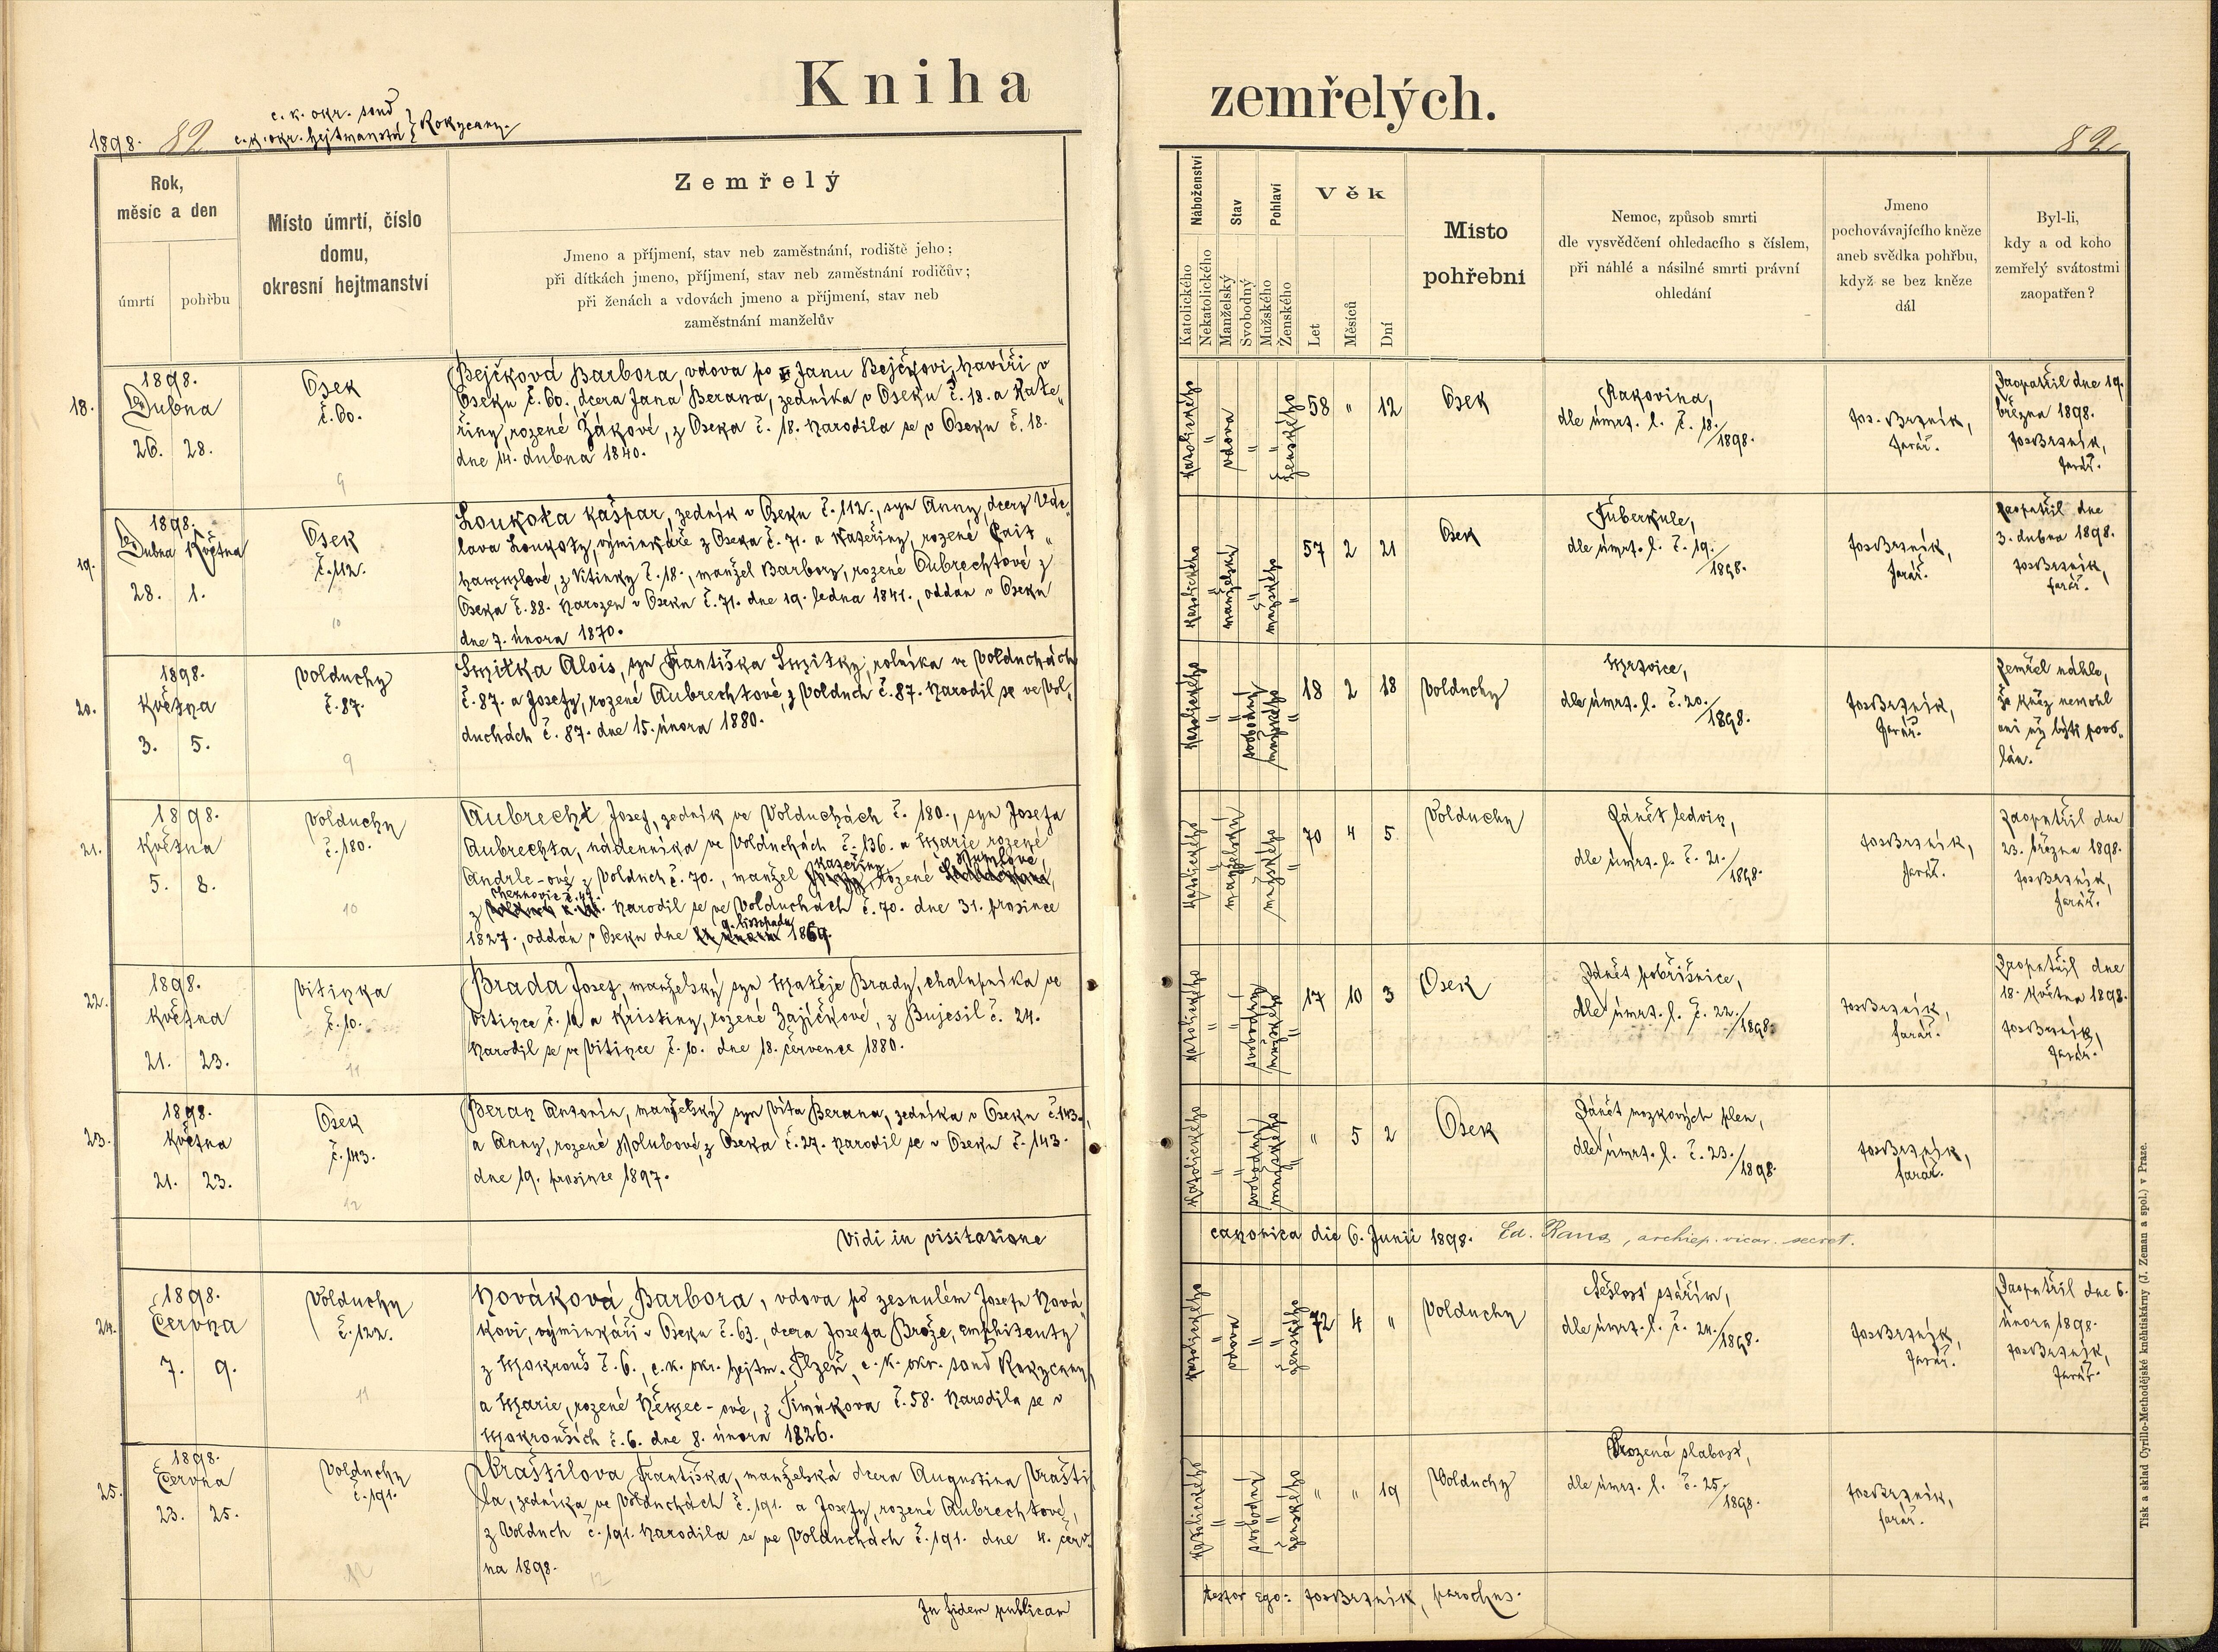 Kniha zemřelých.
1898. 82
c. k. okr. soud
c. k. okr. hejtmanství } Rokycany.
82
Rok,
měsíc a den
úmrtí
pohřbu
Místo úmrtí, číslo
domu,
okresní hejtmanství
Zemřelý
Jmeno a příjmení, stav neb zaměstnání, rodiště jeho;
při dítkách jmeno, příjmení, stav neb zaměstnání rodičův;
při ženách a vdovách jmeno a příjmení, stav neb
zaměstnání manželův
Náboženství
Katolického
Nekatolického
Stav
Manželský
Svobodný
Pohlaví
Mužského
Ženského
Věk
Let
Měsíců
Dní
Místo
pohřební
Nemoc, způsob smrti
dle vysvědčení ohledacího s číslem,
při náhlé a násilné smrti právní
ohledání
Jmeno
pochovávajícího kněze
aneb svědka pohřbu,
když se bez kněze
dál
Byl-li,
kdy a od koho
zemřelý svátostmi
zaopatřen?
18.
1898.
Dubna
26. 28.
Osek
č. 60.
9
Bejčková Barbora, vdova po Janu Bejčkovi, havíři v
Oseku č. 60. dcera Jana Berana, zedníka v Oseku č. 18. a Kate„
řiny, rozené Žákové, z Oseka č. 18. Narodila se v Oseku č. 18.
dne 14. dubna 1840.
Katolického
vdova
ženského
58 " 12
Osek
Rakovina,
dle úmrt. l. č. 18./1898.
Jos. Brzník,
farář.
Zaopatřil dne 19.
března 1898.
Jos Brzník,
farář.
19.
1898.
Dubna Května
28. 1.
Osek
č. 112.
10
Loukota Kašpar, zedník v Oseku č. 112., syn Anny, dcery Vác„
lava Loukoty, výminkáře z Oseka č. 71. a Kateřiny, rozené
z Vitinky č. 18., manžel Barbory, rozené Aubrechtové z
Oseka č. 88. Narozen v Oseku č. 71. dne 19. ledna 1841., oddán v Oseku
dne 7. února 1870.
Katolického
manželský
mužského
57 2 21
Osek
Tuberkule,
dle úmrt. l. č. 19./1898.
Jos Brzník,
farář.
Zaopatřil dne
3. dubna 1898.
Jos Brzník,
farář.
20.
1898.
Května
3. 5.
Volduchy
č. 87.
9
Smitka Alois, syn Františka Smitky, rolníka ve Volduchách
č. 87. a Josefy, rozené Aubrechtové, z Volduch č. 87. Narodil se ve Vol„
duchách č. 87. dne 15. února 1880.
Katolického
svobodný
mužského
18 2 18
Volduchy
Mrtvice,
dle úmrt. l. č. 20./1898.
Jos Brzník,
farář.
Zemřel náhle,
že kněz nemohl
ani už býti povo„
lán.
21.
1898.
Května
5. 8.
Volduchy
č. 180.
10
Aubrecht Josef, zedník ve Volduchách č. 180., syn Josefa
Aubrechta, nádenníka ve Volduchách č. 136. a Marie rozené
Andrle-ové z Volduch č. 70., manžel Kateřiny, rozené
z č. 47. Narodil se ve Volduchách č. 70. dne 31. prosince
1827., oddán v Oseku dne 9. listopadu 1869.
Katolického
manželský
mužského
70 4 5.
Volduchy
Zánět ledvin,
dle úmrt. l. č. 21./1898.
Jos Brzník,
farář.
Zaopatřil dne
23. března 1898.
Jos Brzník,
farář.
22.
1898.
Května
21. 23.
Vitinka
č. 10.
11
Brada Josef, manželský syn Matěje Brady, chalupníka ve
Vitince č. 10. a Kristiny, rozené Zajíčkové, z Bujesil č. 24.
Narodil se ve Vitince č. 10. dne 18. července 1880.
Katolického
svobodný
mužského
17 10 3
Osek
Zánět pobřišnice,
dle úmrt. l. č. 22./1898.
Jos Brzník,
farář.
Zaopatřil dne
18. května 1898.
Jos Brzník,
farář.
23.
1898.
Května
21. 23.
Osek
č. 143.
12
Beran Antonín, manželský syn Víta Berana, zedníka v Oseku č. 143.,
a Anny, rozené Holubové, z Oseka č. 27. Narodil se v Oseku č. 143.
dne 19. prosince 1897.
Katolického
svobodný
mužského
" 5 2
Osek
Zánět mozkových plen,
dle úmrt. l. č. 23./1898.
Jos Brzník,
farář.
Vidi in visitatione canonica die 6. Junii 1898. archiep. vicar. secret.
24.
1898.
Června
7. 9.
Volduchy
č. 122.
11
Nováková Barbora, vdova po zesnulém Josefu Nová„
kovi, výminkáři v Oseku č. 63., dcera Josefa Brože, emphiteuty
z Mokrouš č. 6., c. k. okr. hejtm. Plzeň, c. k. okr. soud Rokycany,
a Marie, rozené Němec-ové, z Timákova č. 58. Narodila se v
Mokrouších č. 6. dne 8. února 1826.
Katolického
vdova
ženského
72 4 "
Volduchy
Sešlost stářím,
dle úmrt. l. č. 24./1898.
Jos Brzník,
farář.
Zaopatřil dne 6.
února 1898.
Jos Brzník,
farář.
25.
1898.
Června
23. 25.
Volduchy
č. 191.
12
Vraštilova Františka, manželská dcera Augustina Vrašti
la, zedníka ve Volduchách č. 191. a Josefy, rozené Aubrechtové,
z Volduch č. 191. Narodila se ve Volduchách č. 191. dne 4. červ„
na 1898.
12
Katolického
svobodný
ženského
" " 19
Volduchy
Vrozená slabost,
dle úmrt. l. č. 25./1898.
Jos Brzník,
farář.
In fidem publicam testor ego: Jos Brzník, parochus.
Tisk a sklad Cyrillo-Methodějské knihtiskárny (J. Zeman a spol.) v Praze.